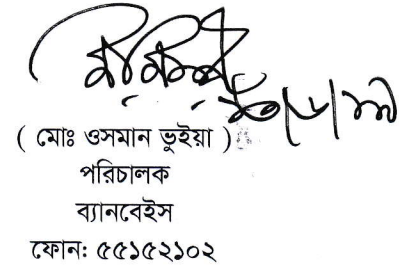 ( মোঃ ওসমান ভুইয়া )
পরিচালক
ব্যানবেইস
ফোন: ৫৫১৫২১০২